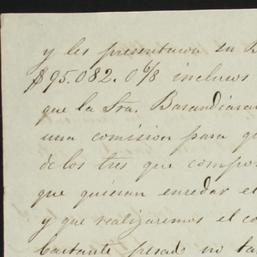 y les presentaron su B
$95.082.0 6/8 inclusos
que la Sra. Barandiaran
una comision para qu
de los tres que compon
que quieran enredar el
y que realizaremos el co
bastante pesado no ta